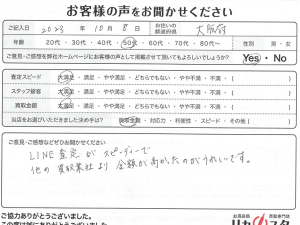 お客様の声をお聞かせください
ご記入日 2023年 10月 8日 お住いの都道府県 大阪府
年齢 20代・30代・40代・50代・60代・70代・80代〜 性別 男・女
ご意見・ご感想を弊社ホームページにお客様の声として掲載させて頂いてもよろしいでしょうか? Yes・No
査定スピード 大満足・満足・やや満足・どちらでもない・やや不満・不満・( )
スタッフ接客 大満足・満足・やや満足・どちらでもない・やや不満・不満・( )
買取金額 大満足・満足・やや満足・どちらでもない・やや不満・不満・( )
当店をお選びいただきました決め手は? 買取金額・対応力・利便性・スピード・その他( )
ご意見・ご感想などぜひお聞かせください
LINE査定がスピーディーで
他の買取業社より金額が高かったのがうれしいです。
ご協力ありがとうございました。
お酒買取専門店
リカスタ